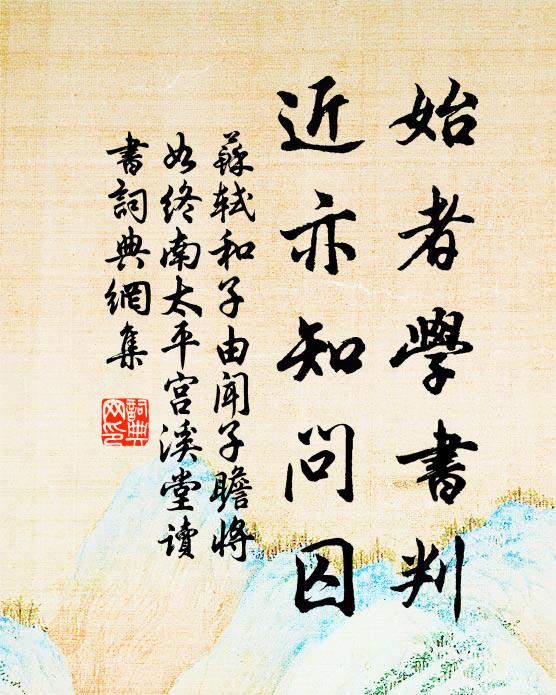 始者學書判
近亦知問囚
蘇軾和子由聞子瞻將
如終南太平宮溪堂讀
書詞典網集
詞典
网印